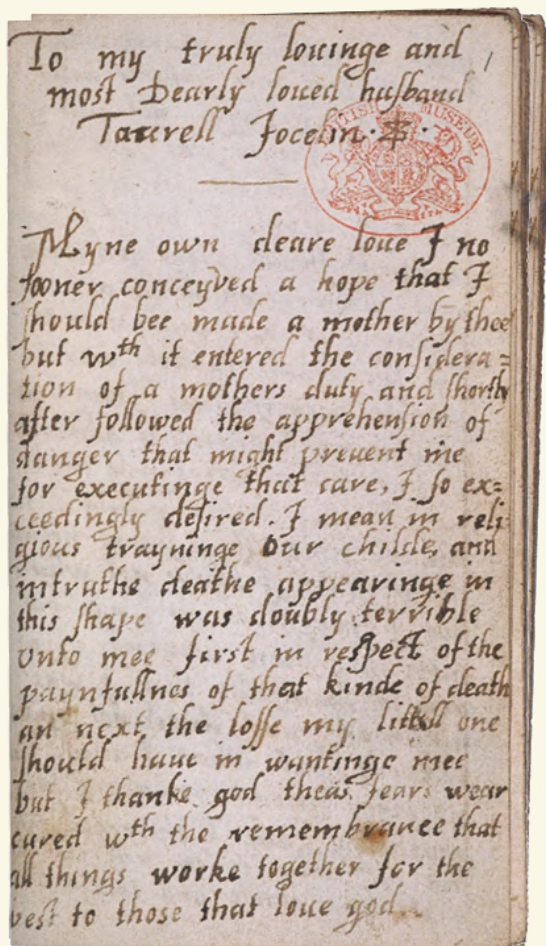 To my truly louinge and
most Dearly loued husband
Taurell Jocelin.
1
BRITISH MUSEUM
Myne own deare loue I no
sooner conceyved a hope that I
should bee made a mother by thee
but wth it entered the considera=
tion of a mothers duty and shortly
after followed the apprehension of
danger that might preuent me
for executinge that care, I so ex=
ceedingly desired. I mean in reli=
gious trayninge Our childe, and
intruthe deathe appearinge in
this shape was doubly terrible
vnto mee first in respect of the
paynfullnes of that kinde of death
an next the losse my littell one
should haue in wantinge mee
but I thanke god theas fears wear
cured wth the remembrance that
all things worke together for the
best to those that loue god